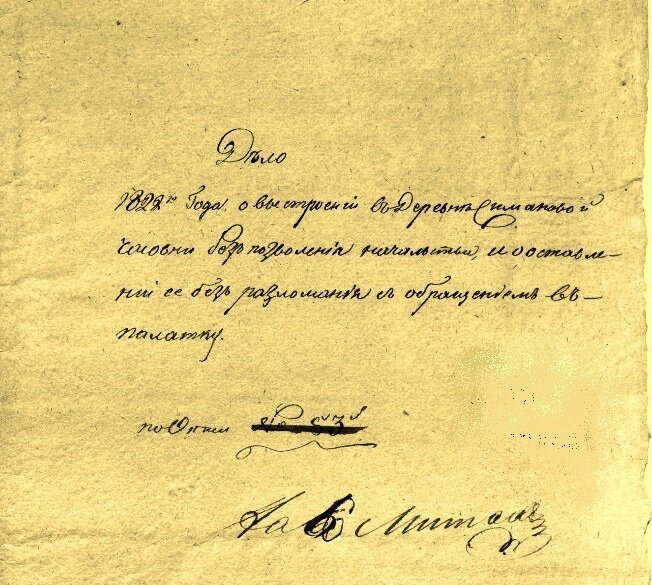 Дѣло
1822го Года о выстроеніи въ Деревнѣ Симановой
часовни безъ позволенія начальства, и о оставле-
ніи ее безъ разломанія съ обращеніемъ въ
палатку.
по Описи
на 6 Листахъ